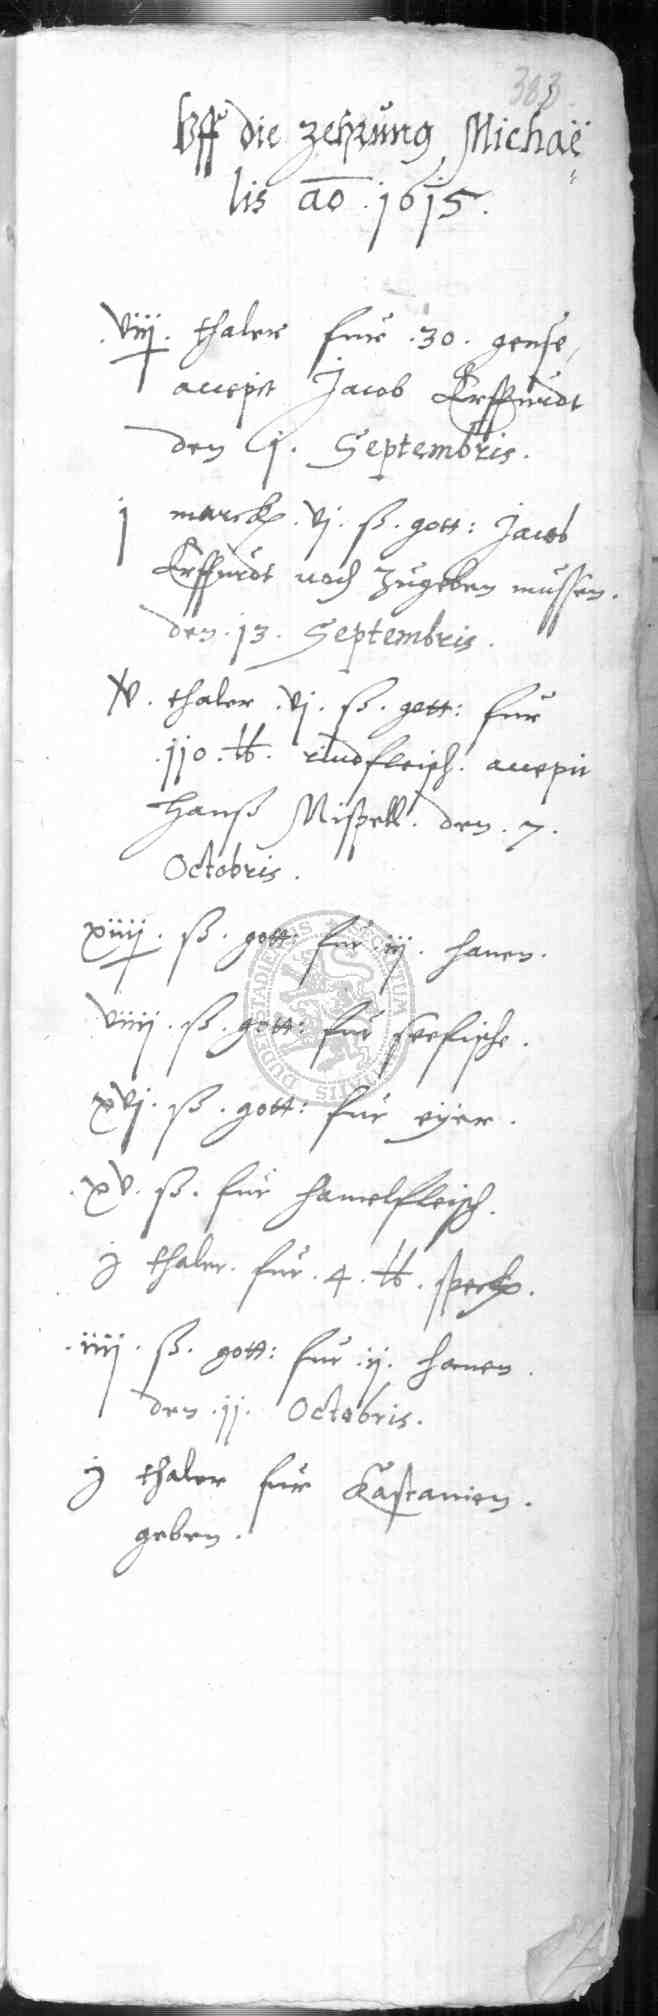 383.
Vff die zehrung Michaë
lis ao 1615.
.viij. thaler fur .30. gense,
accepit Jacob Erffurdt
den 1. Septembris.
j marck .vj. ß. gott: Jacob
Erffurdt noch zugeben mussen.
den .13. Septembris.
xv. thaler .vj. ß. gott: fur
.110. lb. rindfleisch. accepit
Hanß Mißell. den .7.
Octobris.
xiiij. ß. gott: fur iij. hanen.
viiij. ß. gott: fur seefische.
xvj. ß. gott: fur eyer.
.xv. ß. fur hamelfleisch.
j thaler. fur .4. lb. speck.
.iiij. ß. gott: fur .ij. hanen.
den .11. Octobris.
j thaler fur Castanien.
geben.
SECRETUM
DUDERSTADIENSIS